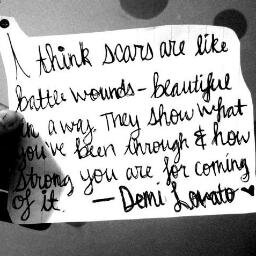 I think scars are like
battle wounds - beautiful
in a way. They show what
you've been through & how
strong you are for coming
out of it. — Demi Lovato